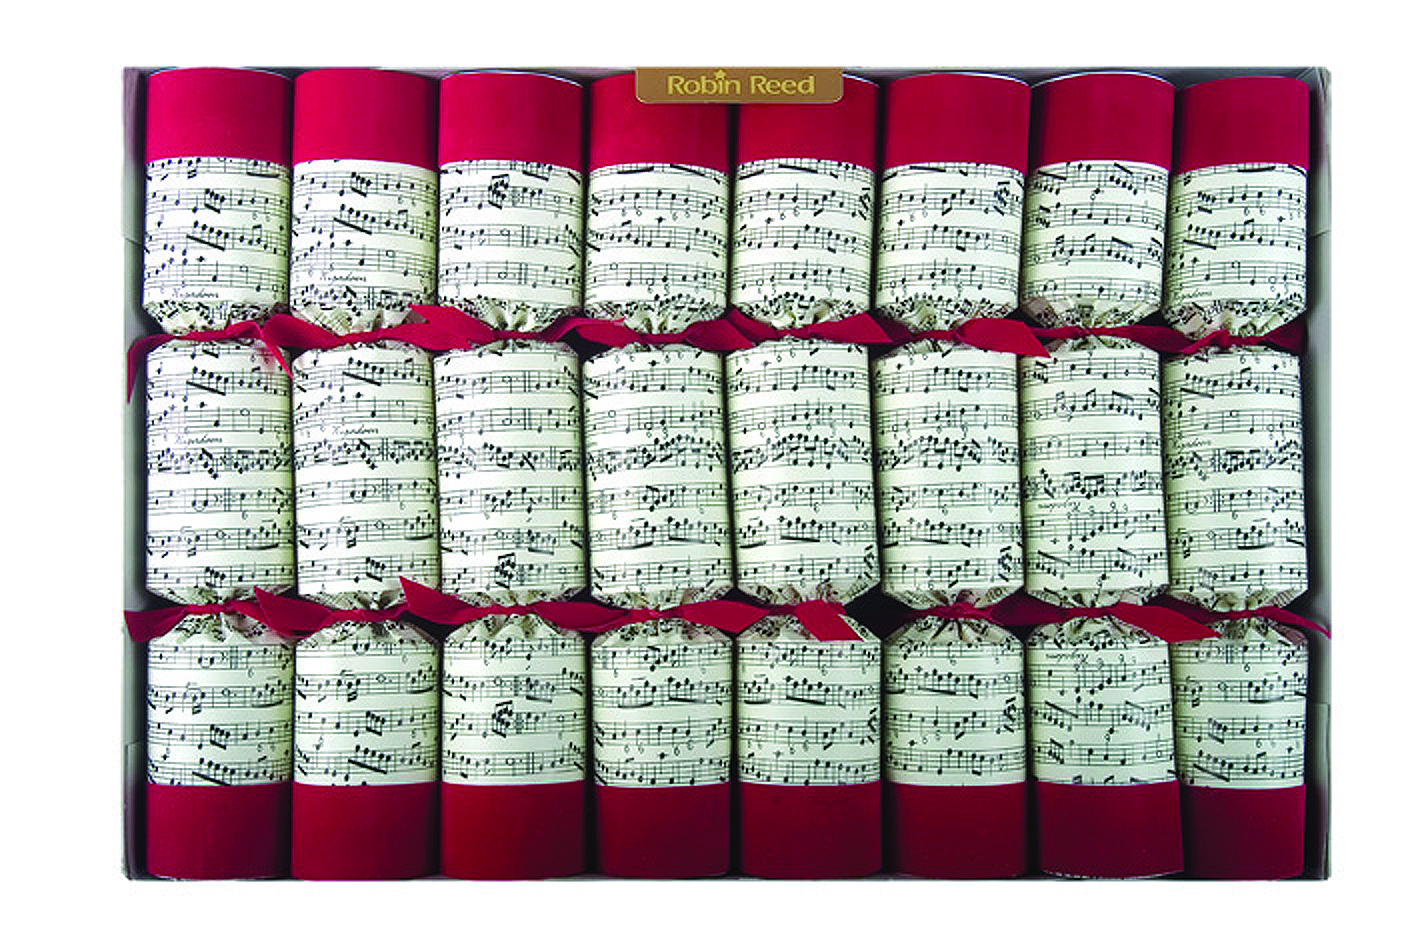 Robin Reed